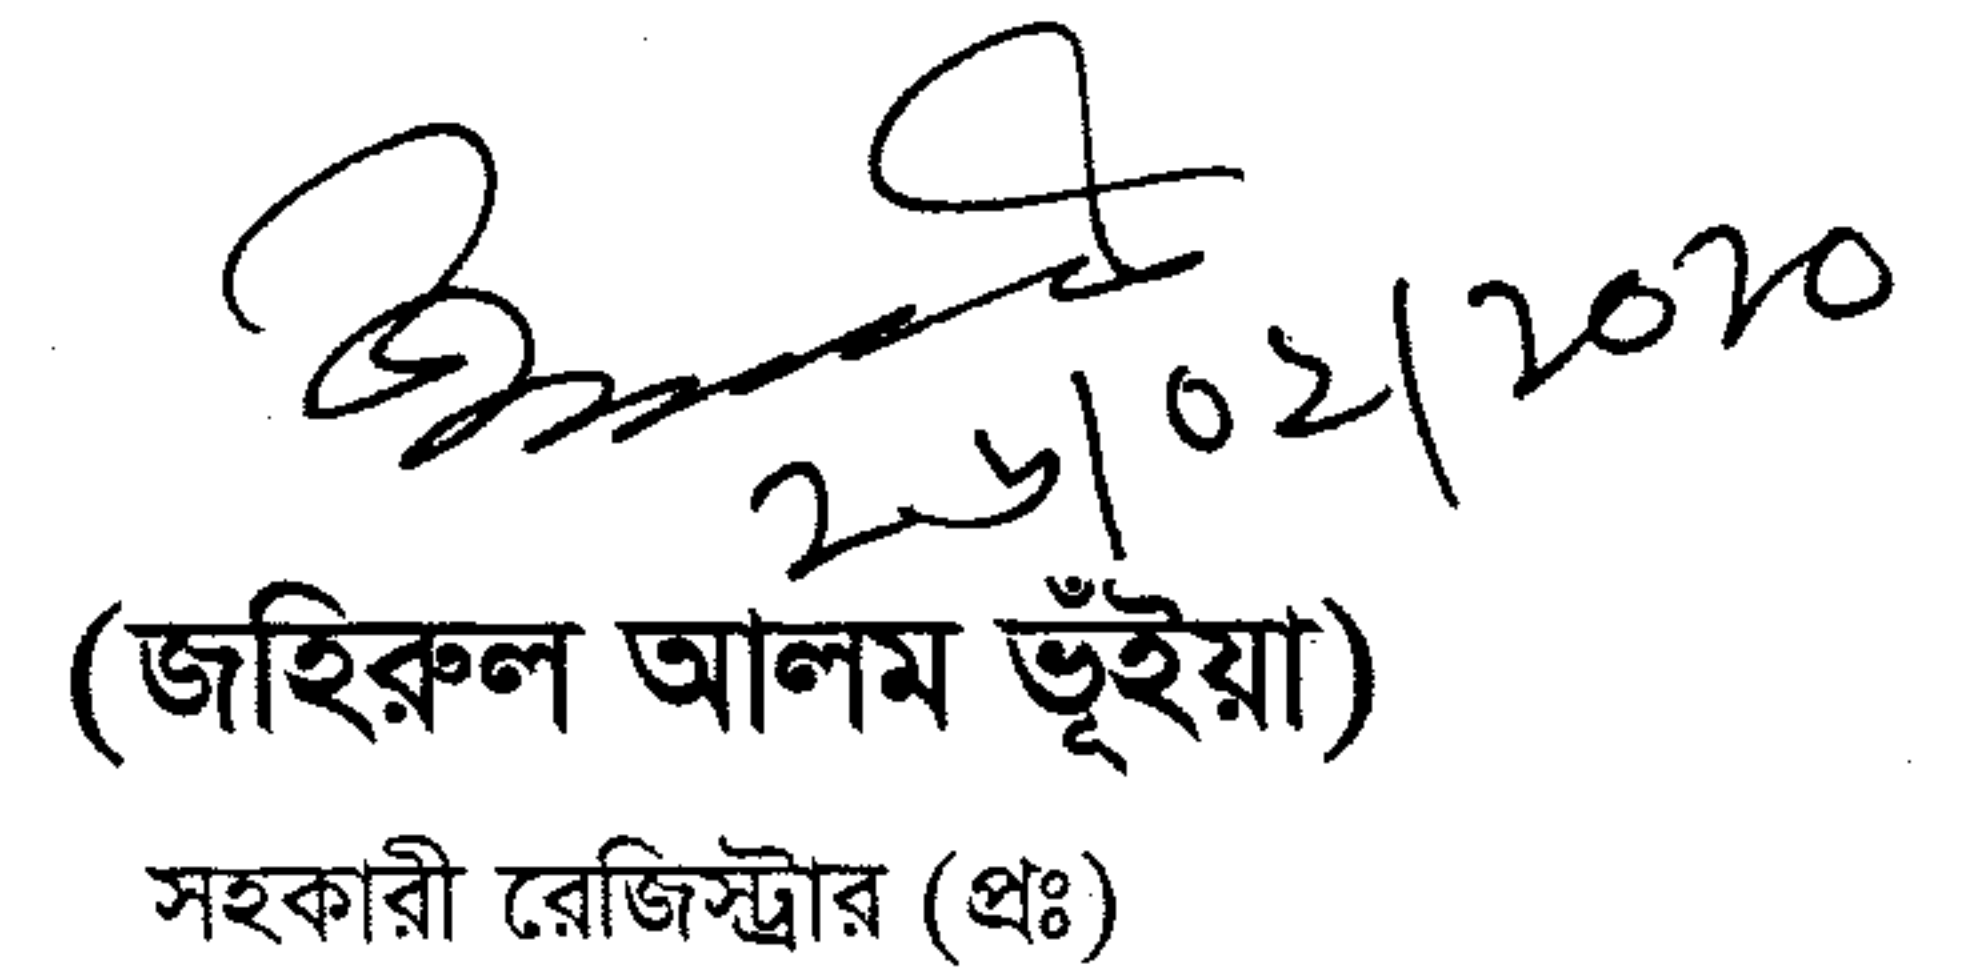 ২৬/০২/২০২০
(জহিরুল আলম ভূঁইয়া)
সহকারী রেজিস্ট্রার (প্রঃ)